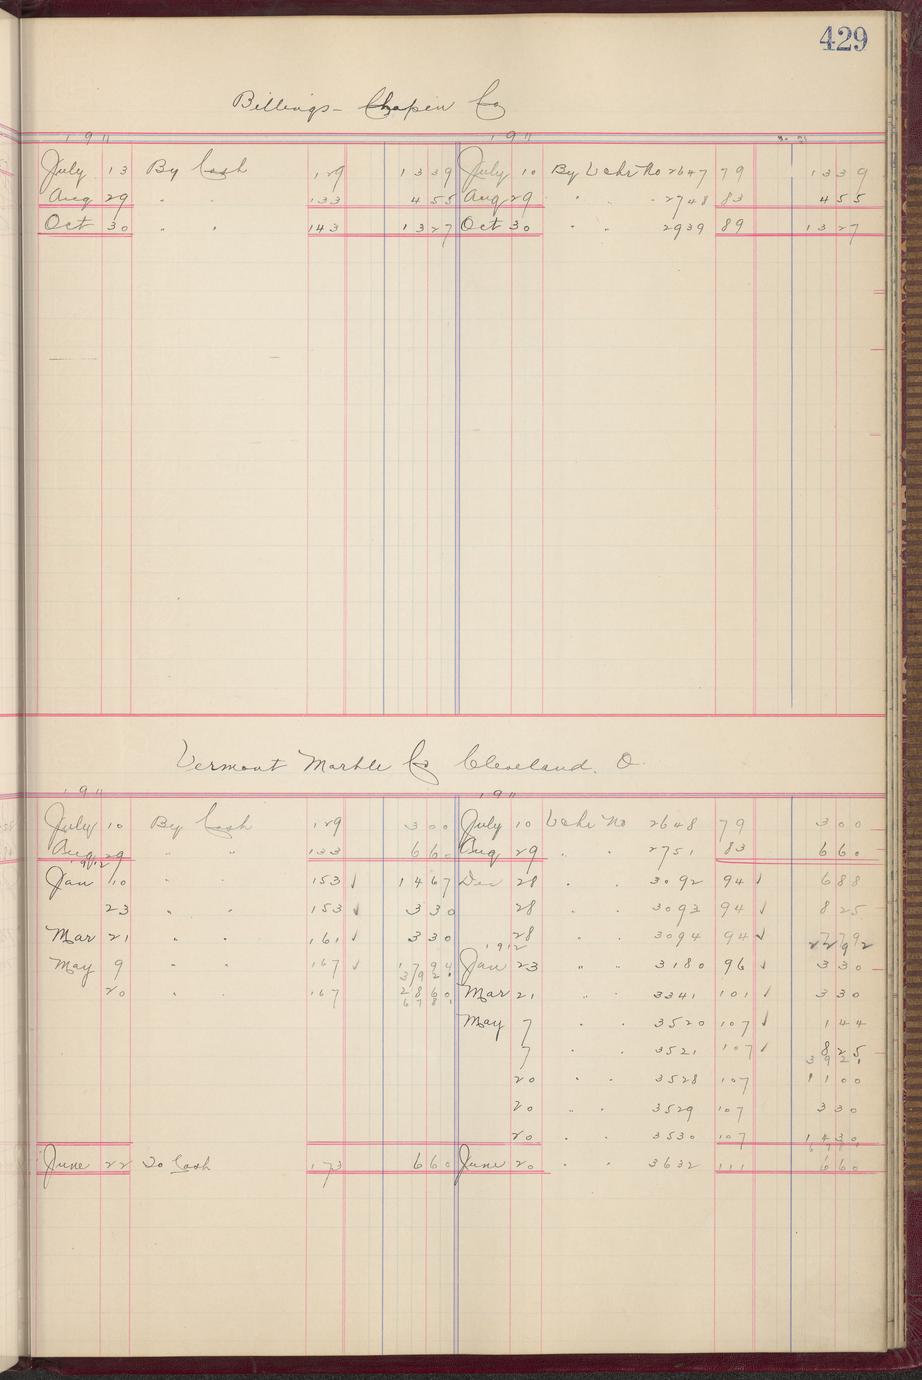 429
Billings-Chapin Co
1911 1911
July 13 By Cash 129 1339 July 10 By Vchr No 2647 79 1339
Aug 29 " " 133 455 Aug 29 " " 2748 83 455
Oct 30 " " 143 1327 Oct 30 " " 2939 89 1327
Vermont Marble Co Cleveland. O.
1911 1911
July 10 By Cash 129 300 July 10 Vchr No 2648 79 300
Aug 29 " " 133 660 Aug 29 " " 2751 83 660
1912
Jan 10 " " 153 ✓ 1467 Dec 28 " " 3092 94 ✓ 688
23 " " 153 ✓ 330 28 " " 3093 94 ✓ 825
Mar 21 " " 161 ✓ 330 28 " " 3094 94 ✓ 779
2292
1912
May 9 " " 167 ✓ 1794 Jan 23 " " 3180 96 ✓ 330
3921
20 " " 167 2860 Mar 21 " " 3341 101 ✓ 330
6781
May 7 " " 3520 107 ✓ 144
7 " " 3521 107 ✓ 825
3921
20 " " 3528 107 1100
20 " " 3529 107 330
20 " " 3530 107 1430
6781
June 22 To Cash 173 660 June 20 " " 3632 111 660